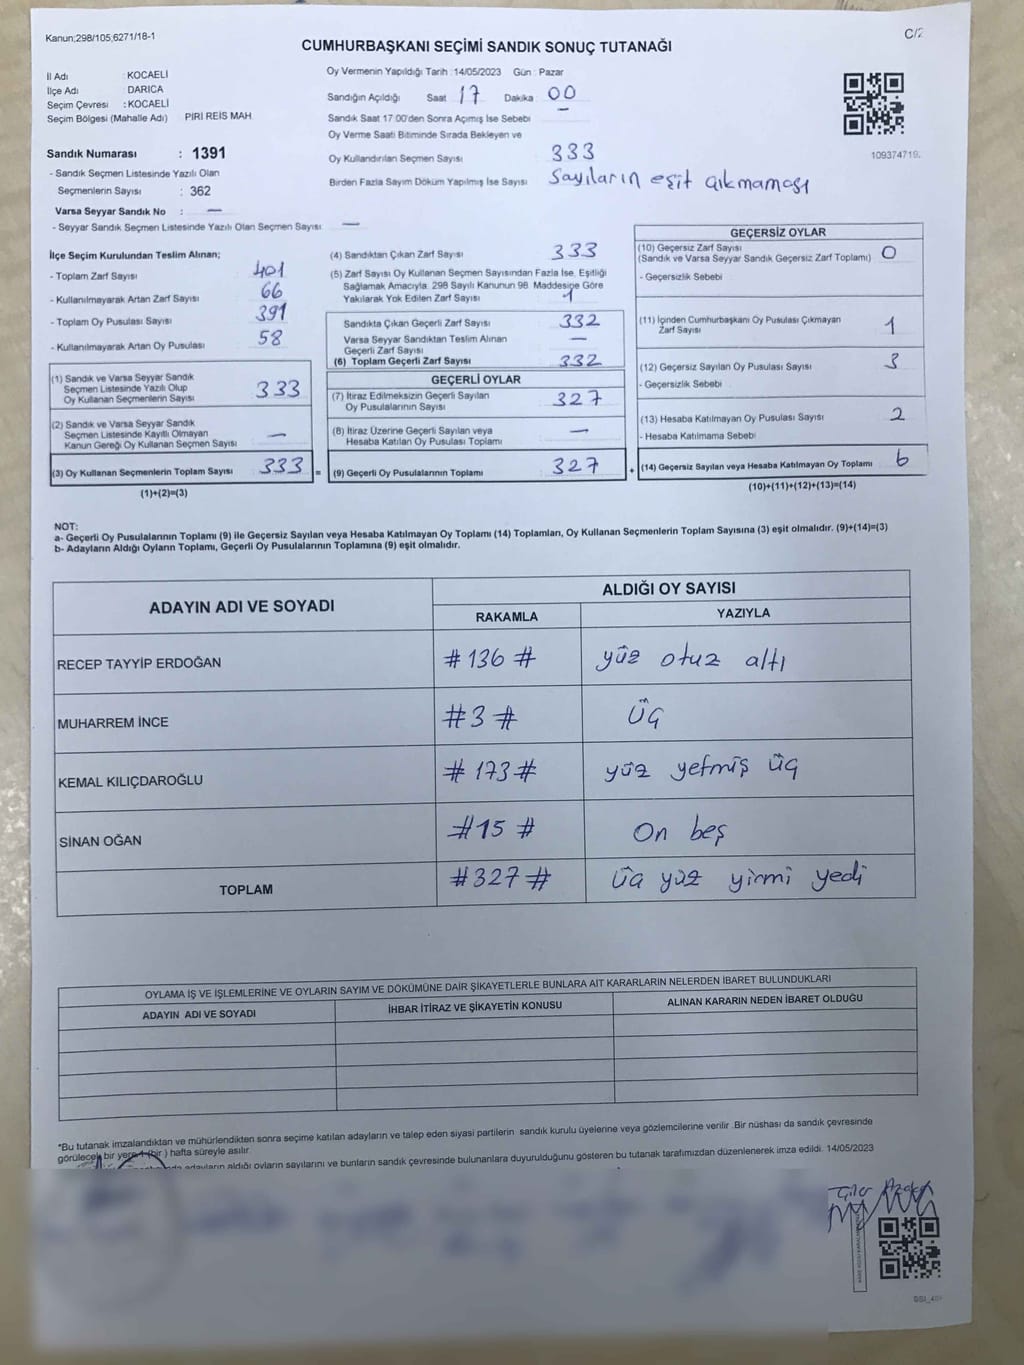 Kanun;298/105,6271/18-1
CUMHURBAŞKANI SEÇİMİ SANDIK SONUÇ TUTANAĞI
C/2
İl Adı : KOCAELİ
İlçe Adı : DARICA
Seçim Çevresi : KOCAELİ
Seçim Bölgesi (Mahalle Adı) PİRİ REİS MAH
Sandık Numarası : 1391
- Sandık Seçmen Listesinde Yazılı Olan
Seçmenlerin Sayısı : 362
Varsa Seyyar Sandık No : —
- Seyyar Sandık Seçmen Listesinde Yazılı Olan Seçmen Sayısı : —
Oy Vermenin Yapıldığı Tarih : 14/05/2023 Gün : Pazar
Sandığın Açıldığı Saat 17 Dakika 00
Sandık Saat 17:00'den Sonra Açımış İse Sebebi —
Oy Verme Saati Bitiminde Sırada Bekleyen ve
Oy Kullandırılan Seçmen Sayısı 333
Birden Fazla Sayım Döküm Yapılmış İse Sayısı Sayıların eşit çıkmaması
109374719.
İlçe Seçim Kurulundan Teslim Alınan;
- Toplam Zarf Sayısı 401
- Kullanılmayarak Artan Zarf Sayısı 66
- Toplam Oy Pusulası Sayısı 391
- Kullanılmayarak Artan Oy Pusulası 58
(1) Sandık ve Varsa Seyyar Sandık
Seçmen Listesinde Yazılı Olup
Oy Kullanan Seçmenlerin Sayısı 333
(2) Sandık ve Varsa Seyyar Sandık
Seçmen Listesinde Kayıtlı Olmayan
Kanun Gereği Oy Kullanan Seçmen Sayısı —
(3) Oy Kullanan Seçmenlerin Toplam Sayısı 333 =
(1)+(2)=(3)
(4) Sandıktan Çıkan Zarf Sayısı 333
(5) Zarf Sayısı Oy Kullanan Seçmen Sayısından Fazla İse, Eşitliği
Sağlamak Amacıyla 298 Sayılı Kanunun 98. Maddesine Göre
Yakılarak Yok Edilen Zarf Sayısı 1
Sandıkta Çıkan Geçerli Zarf Sayısı 332
Varsa Seyyar Sandıktan Teslim Alınan
Geçerli Zarf Sayısı —
(6) Toplam Geçerli Zarf Sayısı 332
GEÇERLİ OYLAR
(7) İtiraz Edilmeksizin Geçerli Sayılan
Oy Pusulalarının Sayısı 327
(8) İtiraz Üzerine Geçerli Sayılan veya
Hesaba Katılan Oy Pusulası Toplamı —
(9) Geçerli Oy Pusulalarının Toplamı 327 +
GEÇERSİZ OYLAR
(10) Geçersiz Zarf Sayısı
(Sandık ve Varsa Seyyar Sandık Geçersiz Zarf Toplamı) 0
- Geçersizlik Sebebi
(11) İçinden Cumhurbaşkanı Oy Pusulası Çıkmayan
Zarf Sayısı 1
(12) Geçersiz Sayılan Oy Pusulası Sayısı 3
- Geçersizlik Sebebi
(13) Hesaba Katılmayan Oy Pusulası Sayısı 2
- Hesaba Katılmama Sebebi
(14) Geçersiz Sayılan veya Hesaba Katılmayan Oy Toplamı 6
(10)+(11)+(12)+(13)=(14)
NOT:
a- Geçerli Oy Pusulalarının Toplamı (9) ile Geçersiz Sayılan veya Hesaba Katılmayan Oy Toplamı (14) Toplamları, Oy Kullanan Seçmenlerin Toplam Sayısına (3) eşit olmalıdır. (9)+(14)=(3)
b- Adayların Aldığı Oyların Toplamı, Geçerli Oy Pusulalarının Toplamına (9) eşit olmalıdır.
ADAYIN ADI VE SOYADI
ALDIĞI OY SAYISI
RAKAMLA YAZIYLA
RECEP TAYYİP ERDOĞAN #136# yüz otuz altı
MUHARREM İNCE #3# üç
KEMAL KILIÇDAROĞLU #173# yüz yetmiş üç
SİNAN OĞAN #15# On beş
TOPLAM #327# üç yüz yirmi yedi
OYLAMA İŞ VE İŞLEMLERİNE VE OYLARIN SAYIM VE DÖKÜMÜNE DAİR ŞİKAYETLERLE BUNLARA AİT KARARLARIN NELERDEN İBARET BULUNDUKLARI
ADAYIN ADI VE SOYADI İHBAR İTİRAZ VE ŞİKAYETİN KONUSU ALINAN KARARIN NEDEN İBARET OLDUĞU
*Bu tutanak imzalandıktan ve mühürlendikten sonra seçime katılan adayların ve talep eden siyasi partilerin sandık kurulu üyelerine veya gözlemcilerine verilir .Bir nüshası da sandık çevresinde
görülecek bir yere 1 (bir ) hafta süreyle asılır.
adayların aldığı oyların sayılarını ve bunların sandık çevresinde bulunanlara duyurulduğunu gösteren bu tutanak tarafımızdan düzenlenerek imza edildi. 14/05/2023